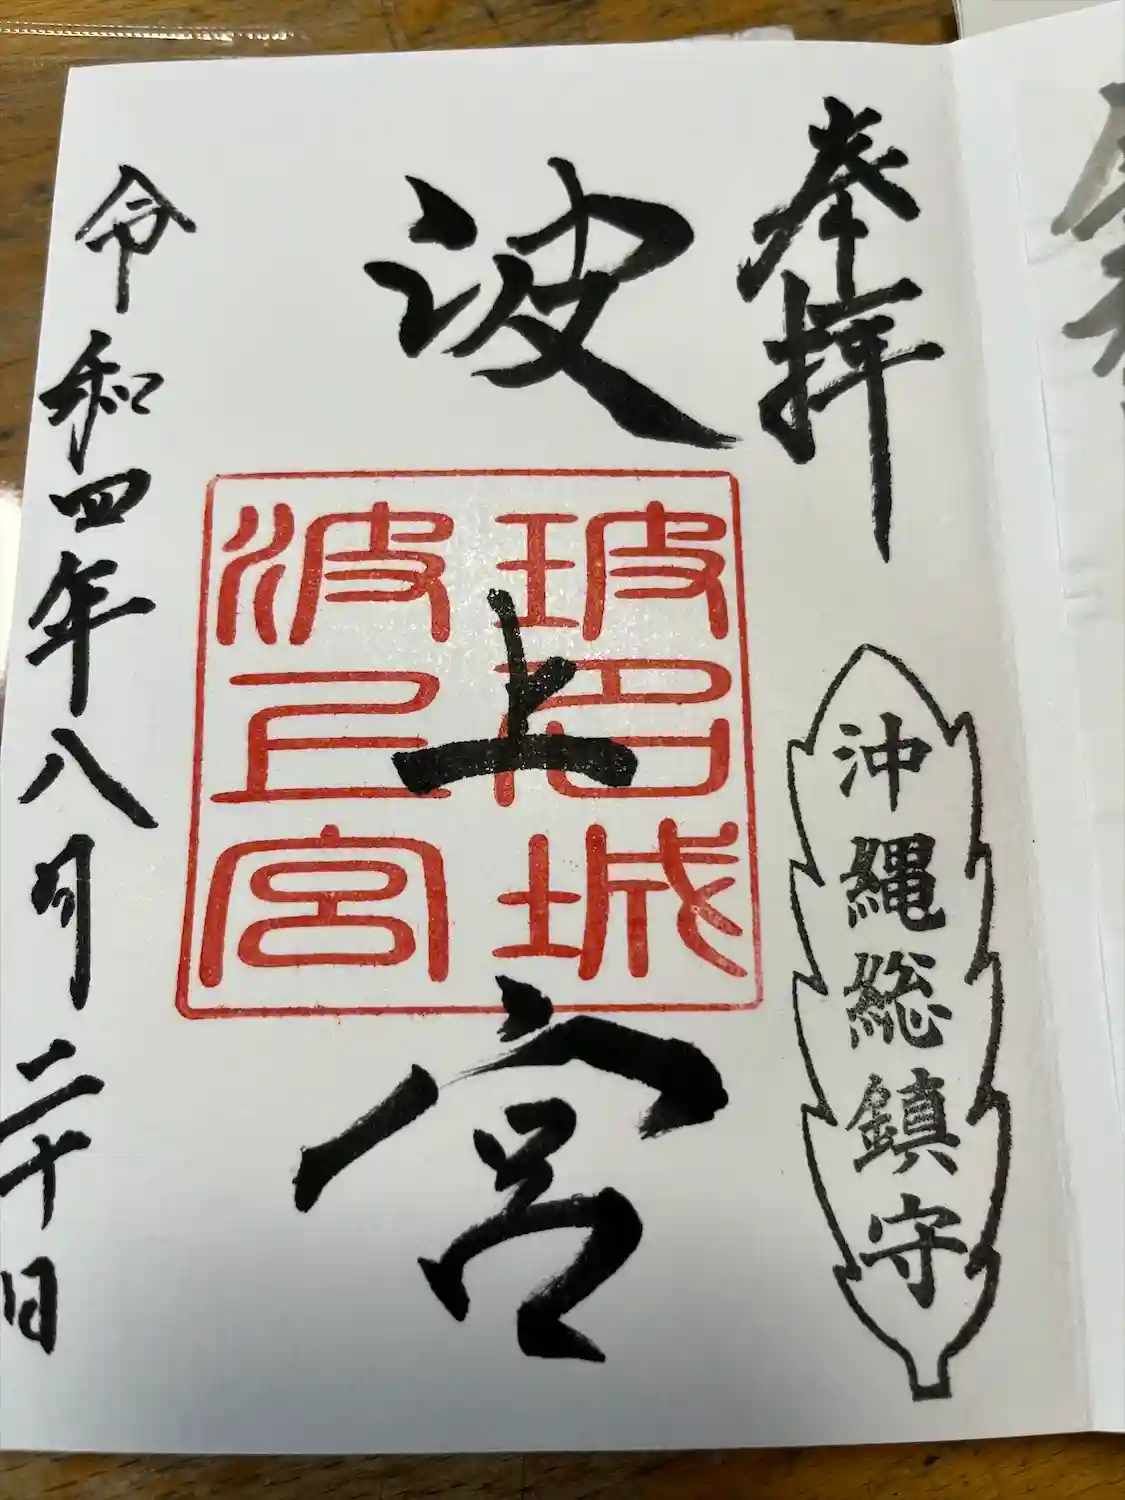 奉拝
沖縄総鎮守
波上宮
玻名城
波上宮
令和四年八月二十日